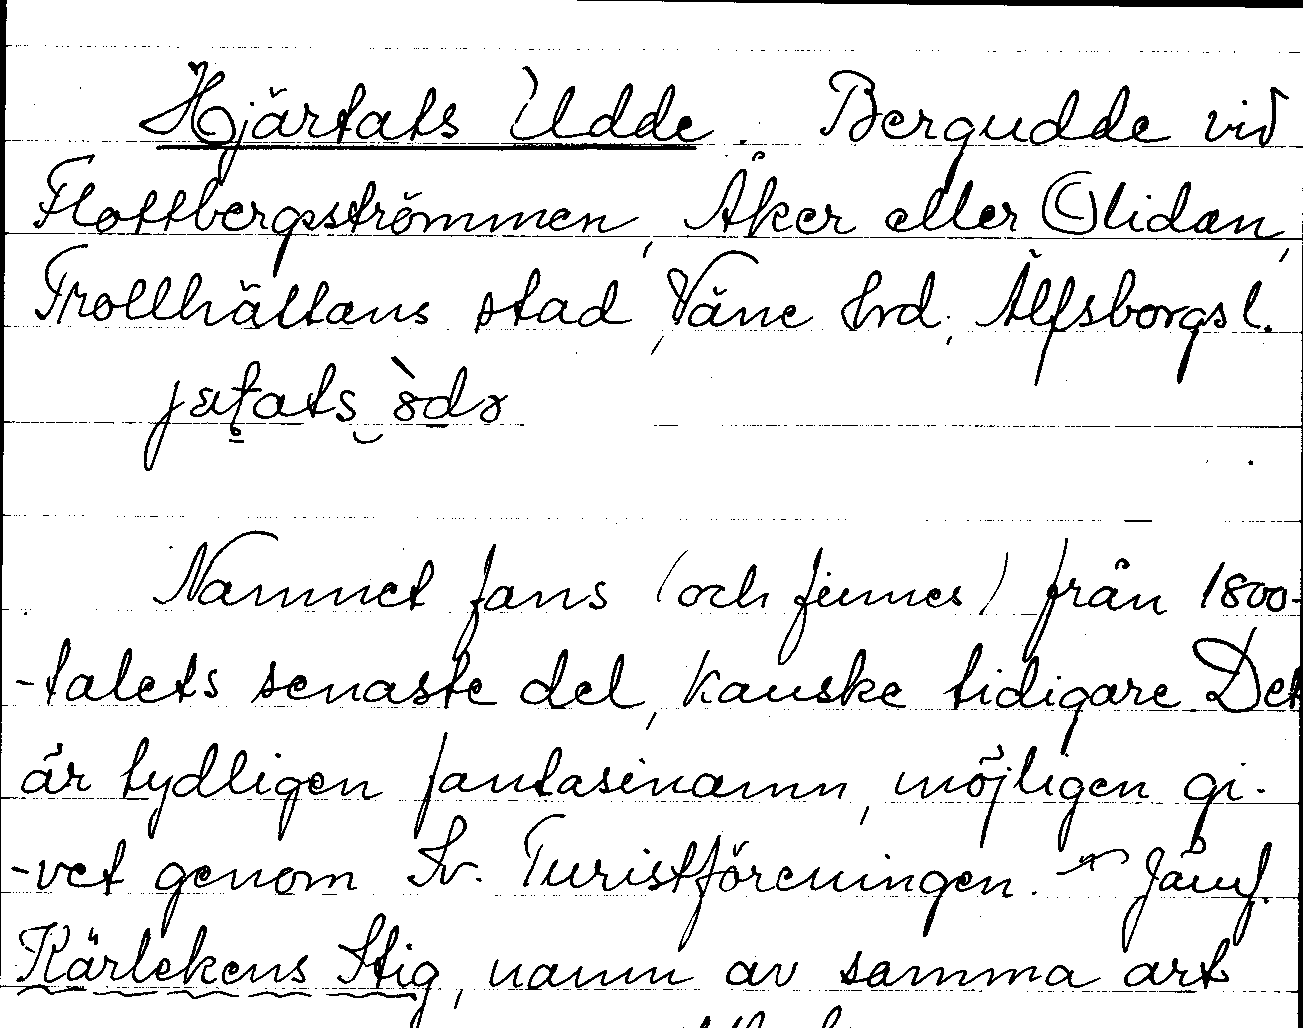 Hjärtats Udde. Bergudde vid
Flottbergsströmmen, Åker eller Olidan,
Trollhättans stad, Väne hrd, Älfsborgs l.
Namnet fans (och finnes) från 1800-
-talets senaste del, kanske tidigare. Det
är tydligen fantasinamn, möjligen gi-
-vet genom Sv. Turistföreningen. – Jämf.
Kärlekens Stig, namn av samma art